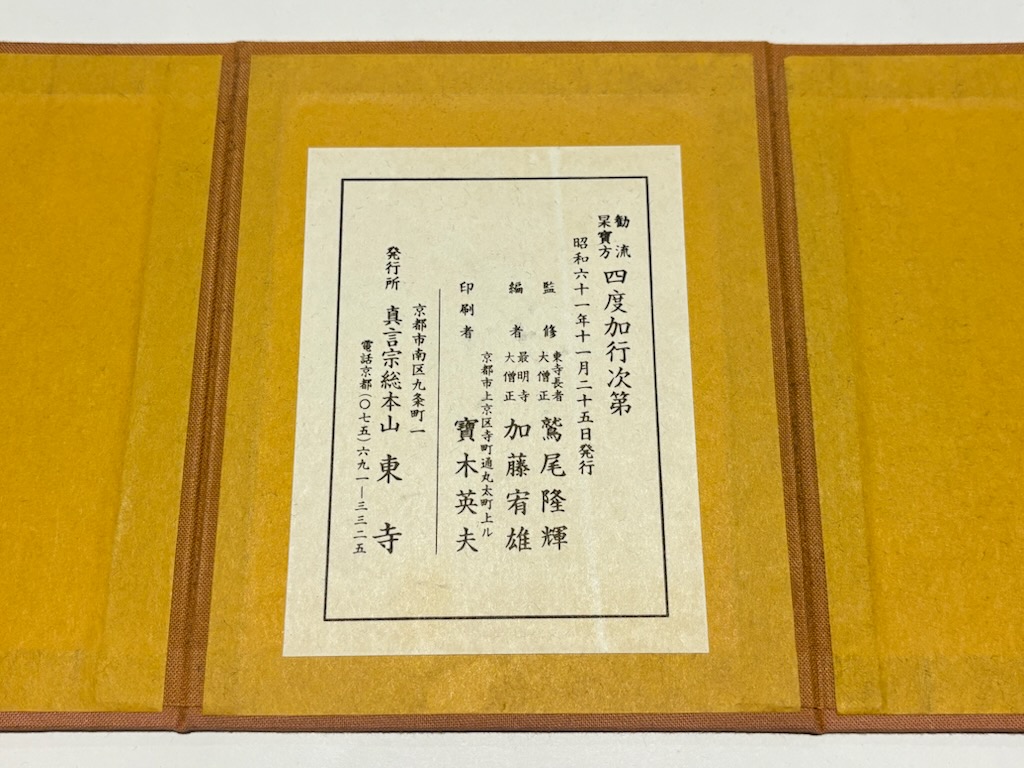 勧流
杲寶方
四度加行次第
昭和六十一年十一月二十五日発行
監修 東寺長者 大僧正 鷲尾隆輝
編者 最明寺 大僧正 加藤宥雄
京都市上京区寺町通丸太町上ル
印刷者 寶木英夫
京都市南区九条町一
発行所 真言宗総本山 東寺
電話京都(〇七五)六九一―三三二五